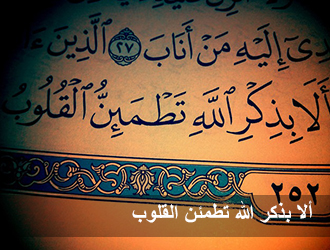 دِىٓ إِلَيْهِ مَنْ أَنَابَ ٢٧ ٱلَّذِينَ ءَا
أَلَا بِذِكْرِ ٱللَّهِ تَطْمَئِنُّ ٱلْقُلُوبُ
٢٥٢
ألا بذكر الله تطمئن القلوب